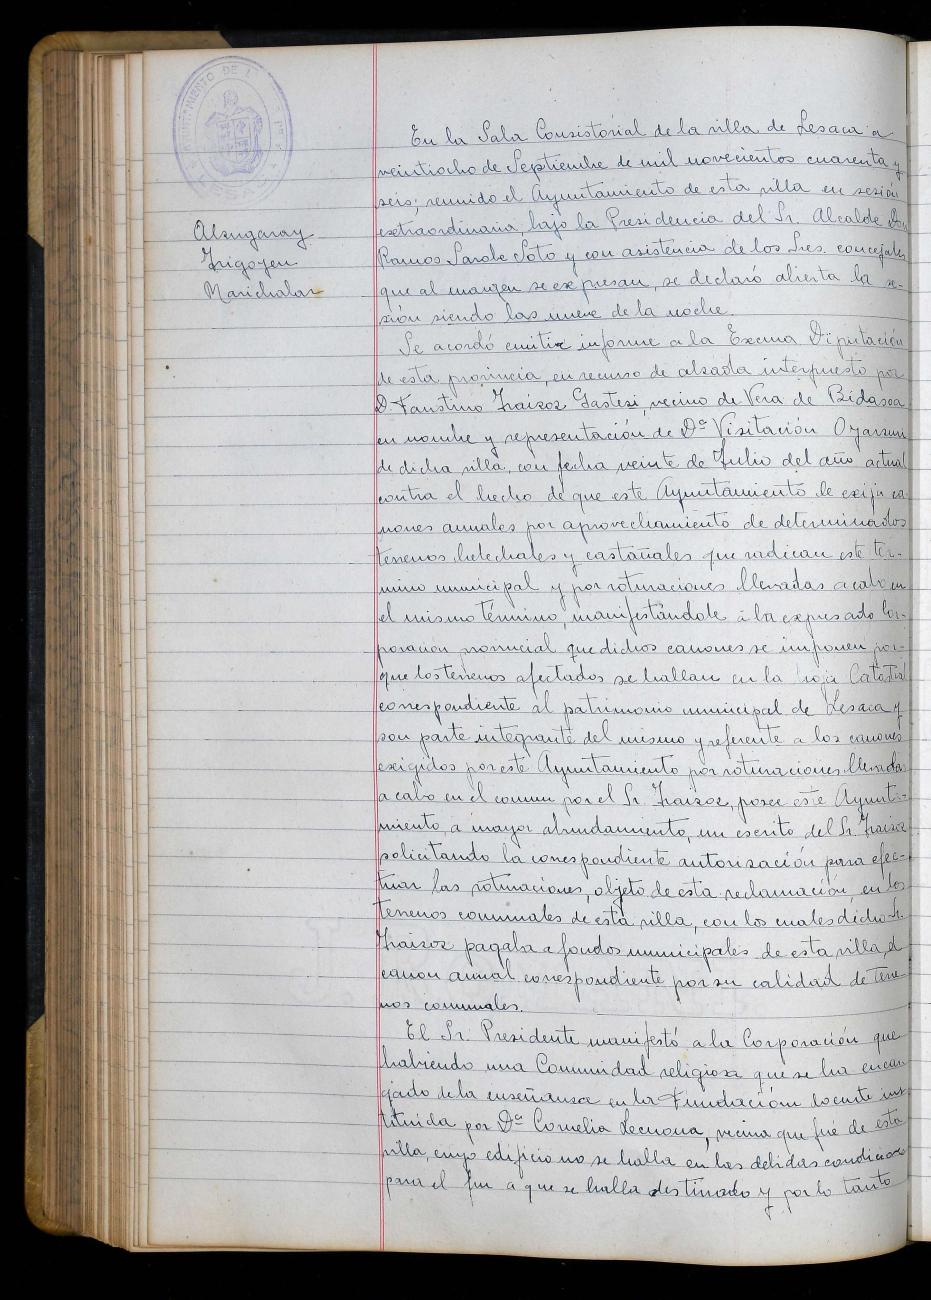 AYUNTAMIENTO DE
LESACA
Alzugaray
Irigoyen
Marichalar
En la Sala Consistorial de la villa de Lesaca a
veintiocho de Septiembre de mil novecientos cuarenta y
seis; reunido el Ayuntamiento de esta villa en sesión
extraordinaria, bajo la Presidencia del Sr. Alcalde Don
Ramos Sarobe Soto y con asistencia de los Sres. concejales
que al margen se expresan, se declaró abierta la se-
sión siendo las nueve de la noche.
Se acordó emitir informe a la Excma Diputación
de esta provincia, en recurso de alzada interpuesto por
D. Faustino Iraizoz Gastesi, vecino de Vera de Bidasoa
en nombre y representación de Dª Visitación Oyarzun
de dicha villa, con fecha veinte de Julio del año actual
contra el hecho de que este Ayuntamiento le exija ca-
nones anuales por aprovechamiento de determinados
terrenos helechales y castañales que radican este tér-
mino municipal y por roturaciones llevadas a cabo en
el mismo término, manifestándole a la expresada Cor-
poración provincial que dichos canones se imponen por-
que los terrenos afectados se hallan en la hoja Catastral
correspondiente al patrimonio municipal de Lesaca y
son parte integrante del mismo y referente a los canones
exigidos por este Ayuntamiento por roturaciones llevadas
a cabo en el comun por el Sr. Iraizoz, posee este Ayunta-
miento, a mayor abundamiento, un escrito del Sr. Iraizoz
solicitando la correspondiente autorización para efec-
tuar las roturaciones, objeto de esta reclamación, en los
terrenos comunales de esta villa, con los cuales dicho Sr.
Iraizoz pagaba a fondos municipales de esta villa, el
canon anual correspondiente por su calidad de terre-
nos comunales.
El Sr. Presidente manifestó a la Corporación que
habiendo una Comunidad religiosa que se ha encar
gado de la enseñanza en la Fundación docente ins
tituida por Dª Cornelia Lecuona, vecina que fué de esta
villa, cuyo edificio no se halla en las debidas condiciones
para el fin a que se halla destinado y por lo tanto